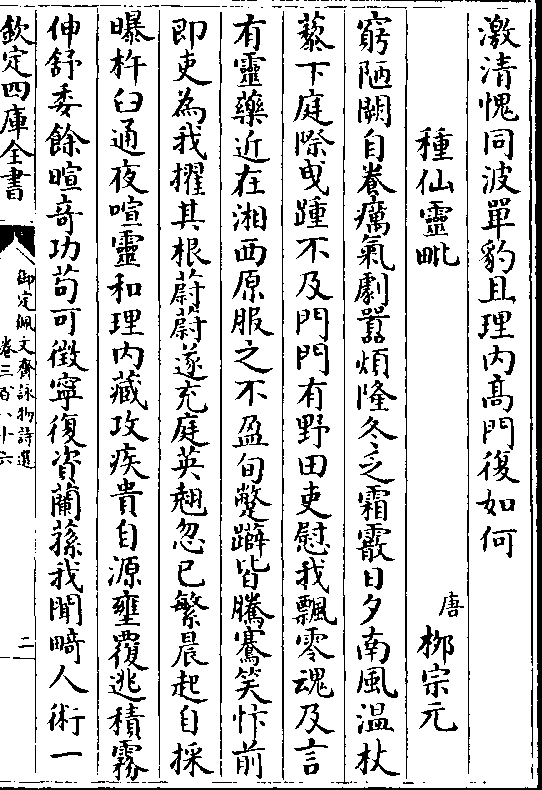 激清愧同波單豹且理内髙門復如何
種仙靈毗
唐
栁宗元
窮陋闕自養癘氣劇囂煩隆冬乏霜霰日夕南風温杖
藜下庭際曳踵不及門門有野田吏慰我飄零魂及言
有靈藥近在湘西原服之不盈旬蹩躠皆騰騫笑忭前
即吏為我擢其根蔚蔚遂充庭英翹忽已繁晨起自採
曝杵臼通夜喧靈和理内藏攻疾貴自源壅覆逃積霧
伸舒委餘暄竒功茍可徴寧復資蘭蓀我聞畸人術一
欽定四庫全書
御定佩文齋詠物詩選
卷三百八十六
二